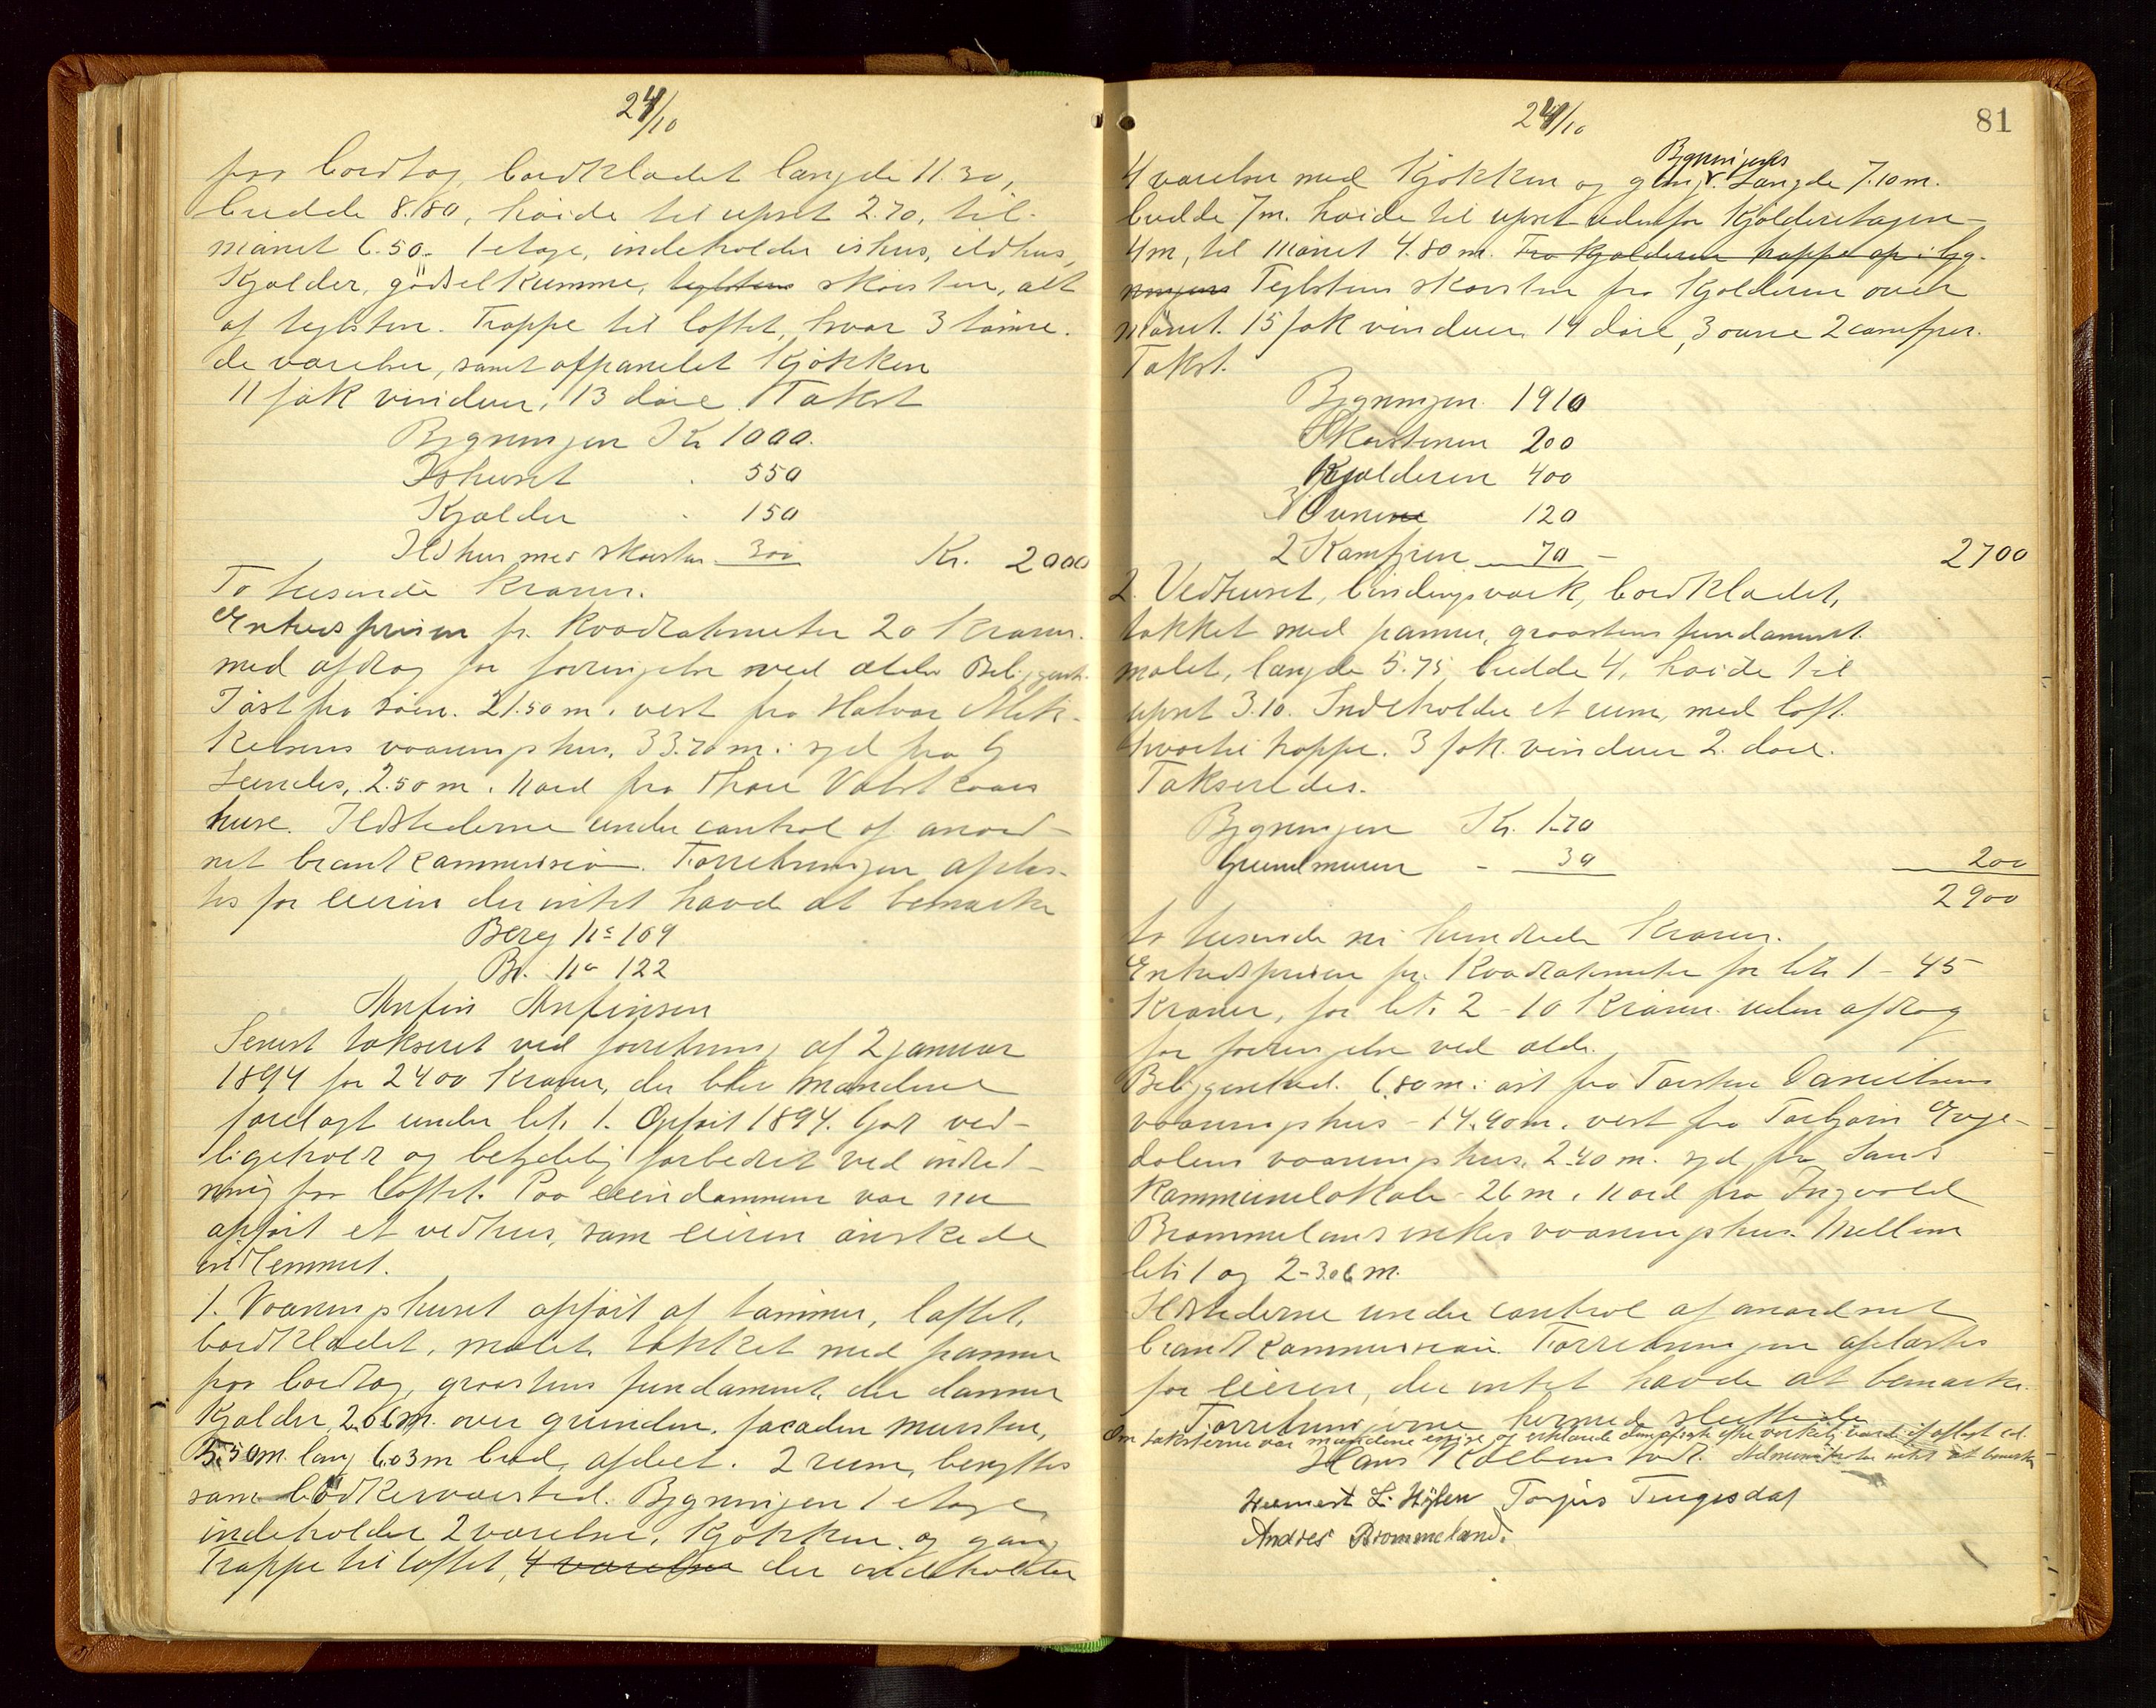 24/10
paa bordtag, bordklædet længde 11.30,
bredde 8.80, høide til opset 2.70, til
mønet 6.50. 1 etage, indeholder ishus, ildhus,
Kjælder, gödselkumme, teglstens skorsten, alt
af teglsten. Trappe til loftet, hvor 3 tømre-
de værelser, samt afpanelet Kjøkken
11 fak vinduer, 13 døre. Takst
Bygningen Kr 1000.
Ishuset - 550
Kjælder - 150
Ildhus med skorsten 300 Kr. 2000
To tusende kroner.
Enhedsprisen pr. kvadratmeter 20 kroner
med afdrag for forringelse ved ælde. Beliggenh.
I øst fra søen. 21.50 m. vest fra Halvor Mik-
kelsens vaaningshus, 33.70 m. syd fra G
Lundes, 2.50 m. nord fra Thore Vatstvaais
huse. Ildstederne under control af anord-
net brandkommission. Forretningen oplæs-
tes for eieren der intet havde at bemærke
Berg No 109
Br. No 122
Anfin Anfinsen
Senest takseret ved forretning af 2 januar
1894 for 2400 Kroner, der blev mændene
forelagt under lit. 1. Opført 1894. Godt ved-
ligeholdt og betydelig forbedret ved indred-
ning paa loftet. Paa eiendommen var nu
opført et vedhus, som eieren ønskede
indlemmet.
1. Vaaningshuset opført af tømmer, loftet,
bordklædet, malet, tækket med panner
paa bordtag, graastens fundament, der danner
Kjælder, 2.06 m. over grunden, facaden mursten,
5.50 m. lang 6.03 m bred, afdelt. 2 rum, benyttes
som bødkerværksted. Bygningen 1 etage
indeholder 2 værelser, Kjøkken og gang
Trappe til loftet, 4 værelser der indeholder
24/10
81
Bygningens
4 værelser med Kjøkken og gang. Længde 7.10 m.
bredde 7 m. høide til opset udenfor Kjælderetagen
4 m, til mønet 4.80 m. Fra kjælderen trappe op i byg-
ningen Teglstens skorsten fra Kjælderen over
mønet. 15 fak vinduer 14 døre, 3 ovne 2 comfyrer.
Takst.
Bygningen 1910
Skorstenen 200
Kjælderen 400
3 Ovne 120
2 Komfyrer 70 - 2700
2. Vedhuset, bindingsværk, bordklædet,
tækket med panner, graastens fundament
malet, længde 5.75 bredde 4, høide til
opset 3.10. Indeholder et rum, med loft
hvortil trappe. 3 fak. vinduer 2. døre.
Takseredes.
Bygningen Kr. 170
Grundmuren - 30 200
2900
to tusende ni hundrede kroner.
Enhedsprisen pr. Kvadratmeter for lit. 1 - 45
Kroner, for lit. 2 - 10 Kroner uden afdrag
for forringelse ved ælde.
Beliggenhed. 6.80 m. øst fra Torsten Danielsens
vaaningshus - 14.90 m. vest fra Torbjørn Evje-
dalens vaaningshus. 2.40 m. syd fra Sands
Kommunelokale - 26 m. nord fra Ingvald
Brommelands enkes vaaningshus. Mellem
lit. 1 og 2 - 3.06 m.
Ildstederne under control af anordnet
brandkommission. Forretningen oplæstes
for eieren, der intet havde at bemærke.
Forretningerne hermed sluttede
Om taksterne var mændene enige og erklærede dem afsagte efter virkelig værdi if aflagt ed.
Hans Kolbenstvedt. Administrator intet at bemærke
Helmert L. Hylen Torjus Tengesdal
Andres Brommeland.